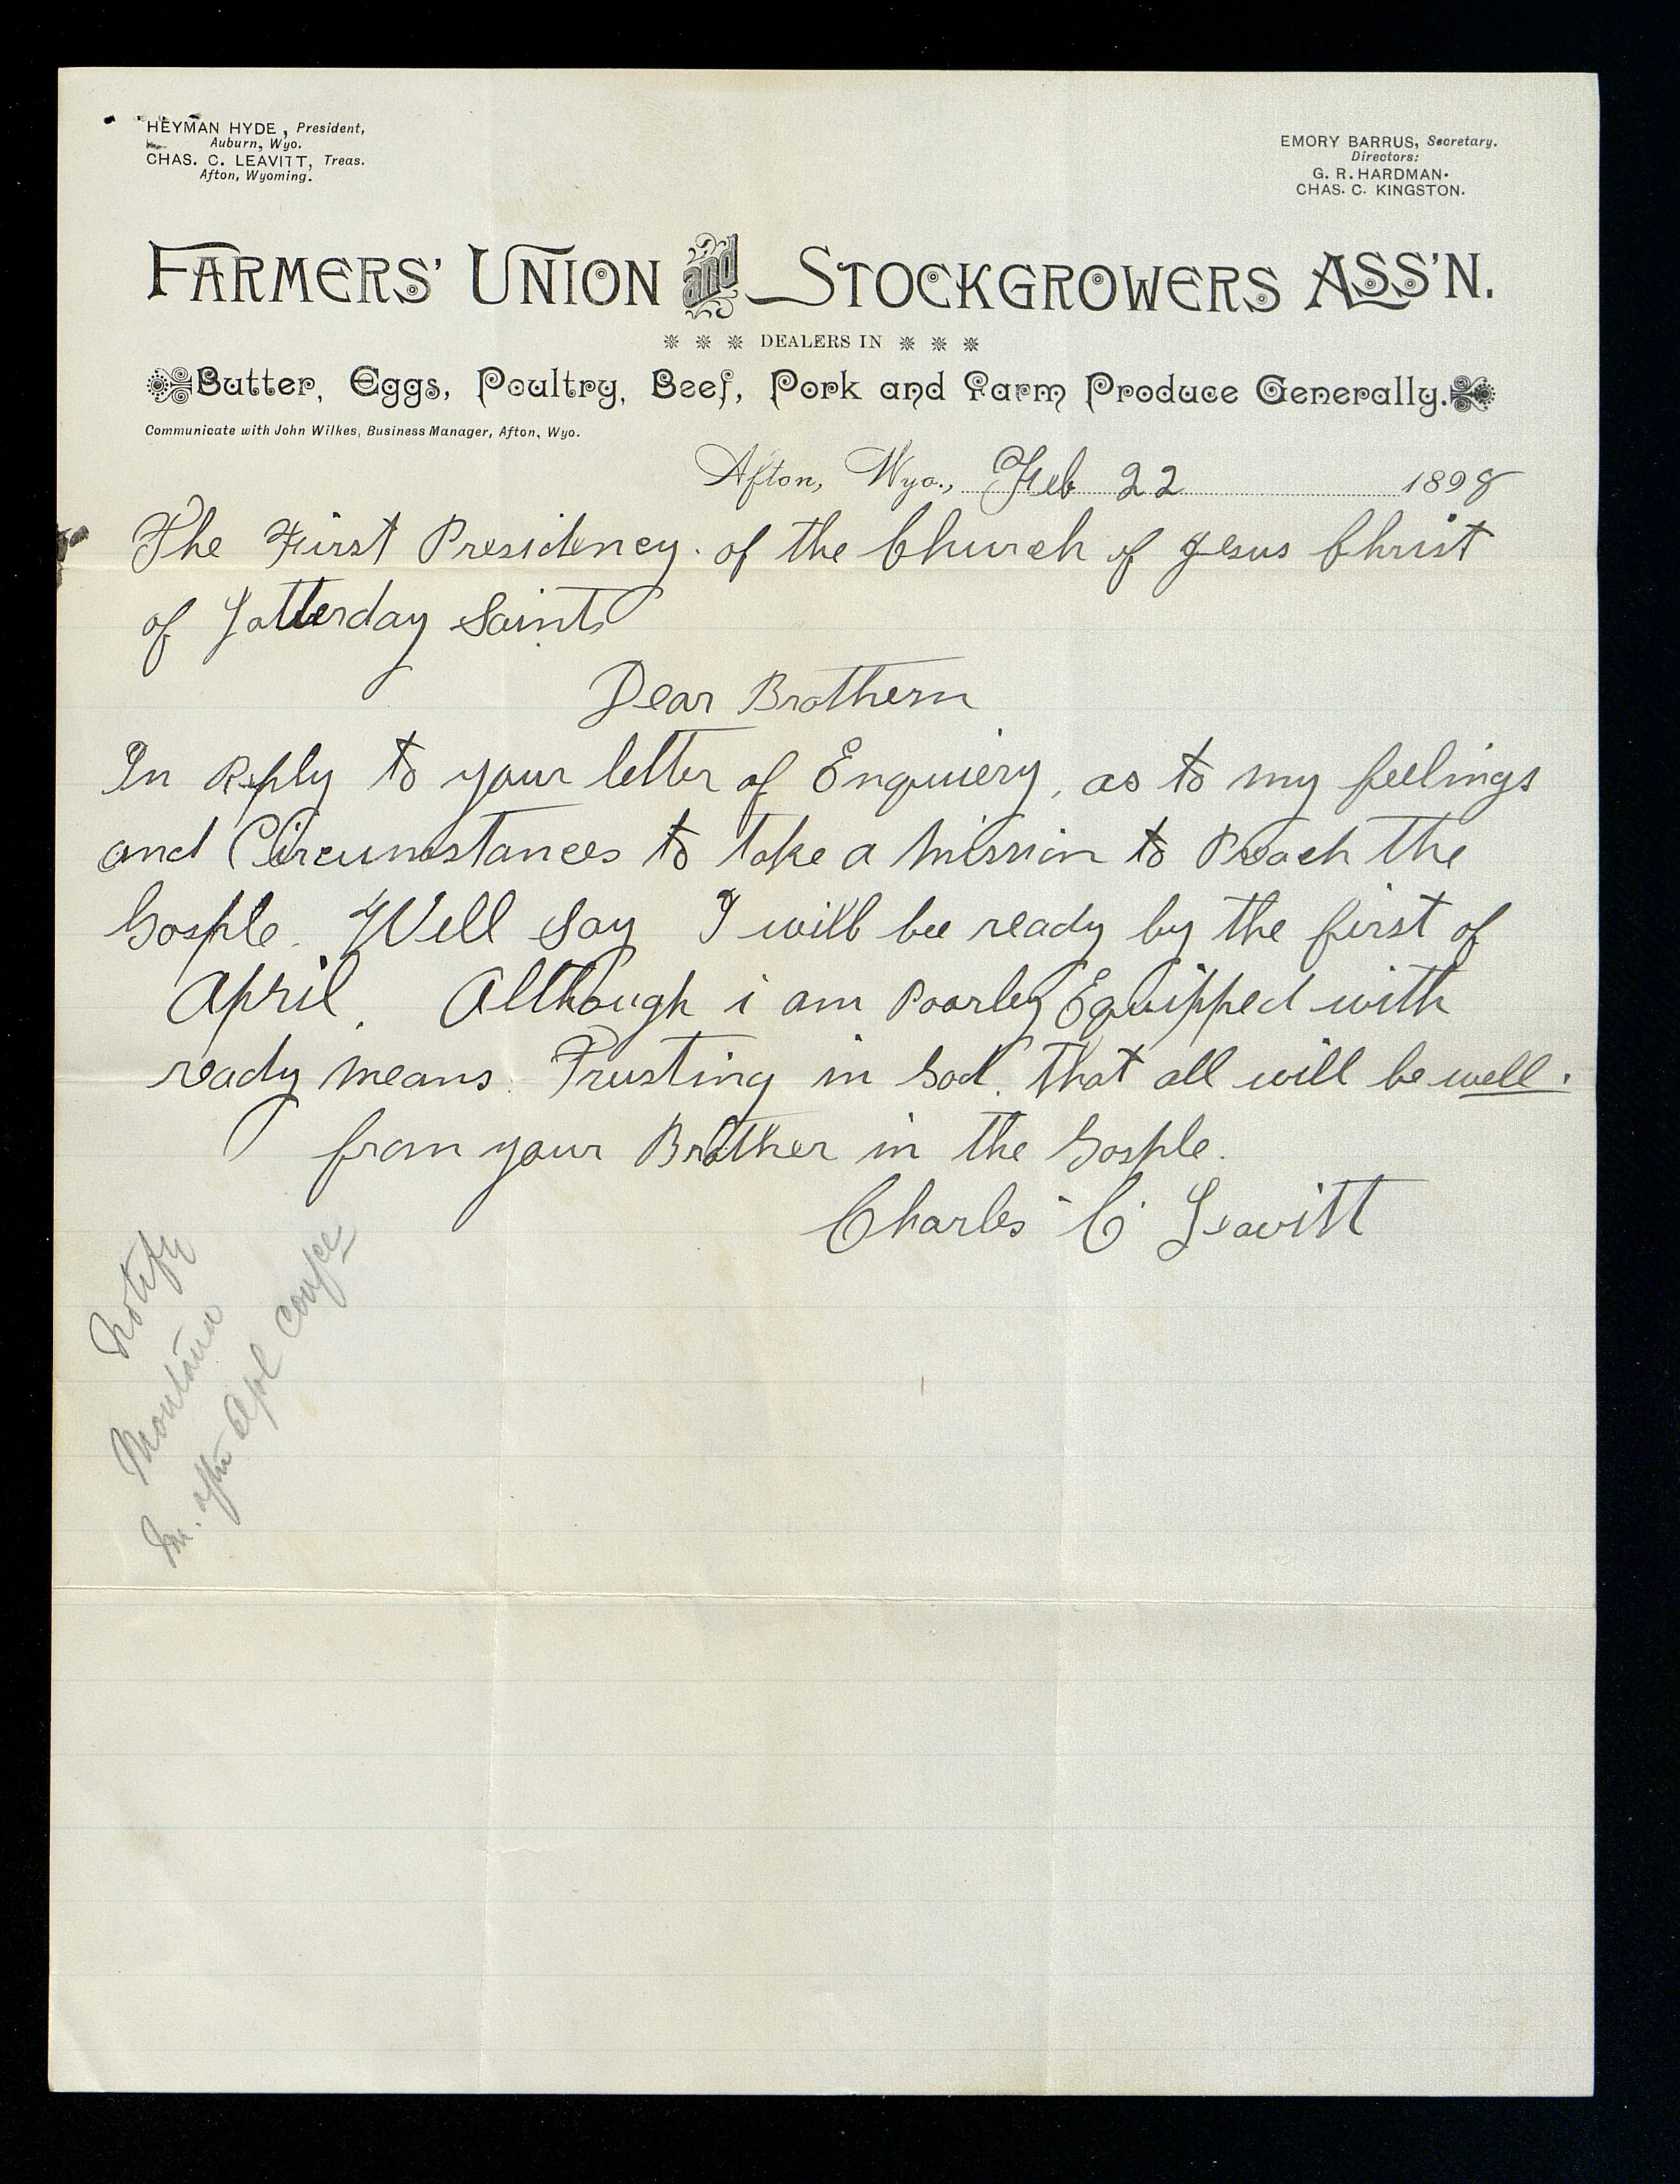 HEYMAN HYDE, President,
Auburn, Wyo.
CHAS. C. LEAVITT, Treas.
Afton, Wyoming.
EMORY BARRUS, Secretary.
Directors:
G. R. HARDMAN.
CHAS. C. KINGSTON.
FARMERS' UNION and STOCKGROWERS ASS'N.
DEALERS IN
Butter, Eggs, Poultry, Beef, Pork and Farm Produce Generally.
Communicate with John Wilkes, Business Manager, Afton, Wyo.
Afton, Wyo., Feb 22 1898
The First Presidency. of the Church of Jesus Christ
of Latterday Saints
Dear Brothern
In Reply to your letter of Enquiery, as to my feelings
and Circumstances to take a Mission to Preach the
Gosple. Well say I will be ready by the first of
April. Although i am Poorley Equipped with
ready means. Trusting in God. that all will be well.
from your Brother in the Gosple.
Charles C Leavitt
Notify
Montana
M. after Apl Confce